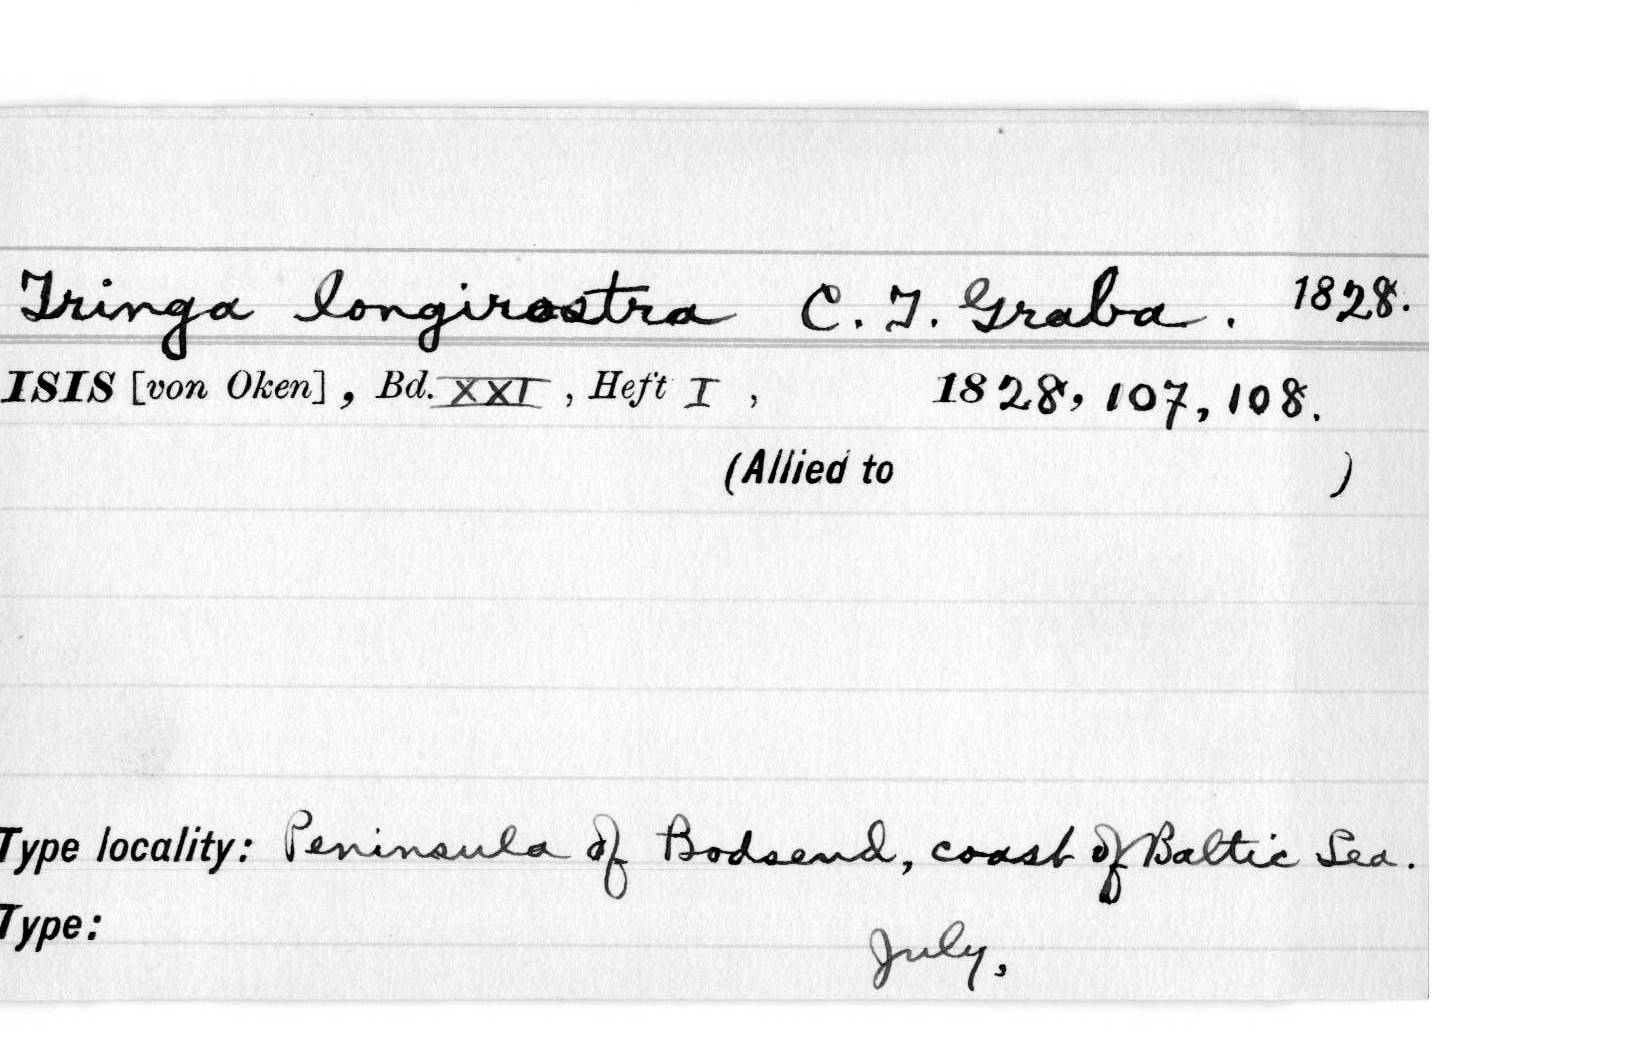 Tringa longirostra C. J. Graba. 1828.
ISIS [von Oken], Bd. XXI, Heft I, 1828, 107, 108.
(Allied to )
Type locality: Peninsula of Bodsend, coast of Baltic Sea.
Type:
July,